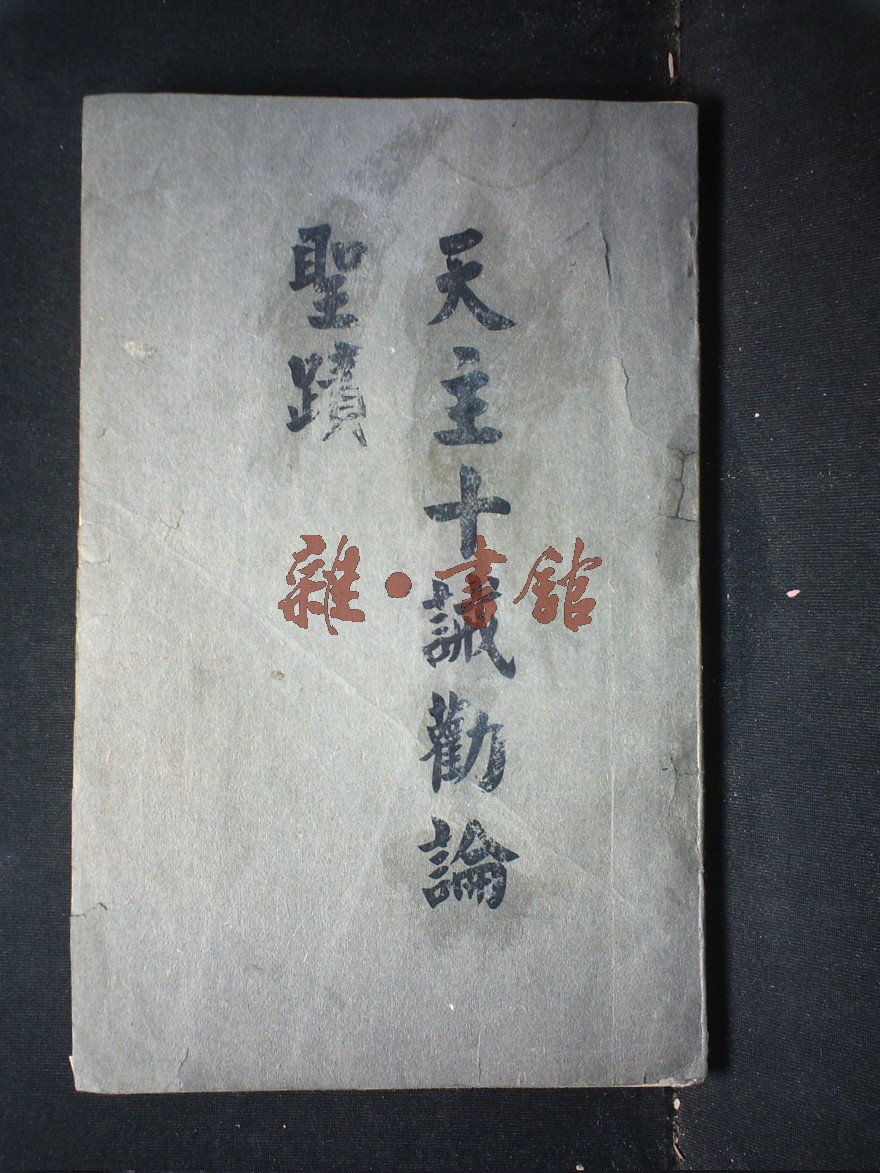 天主十誡勸論
聖蹟
雜·書館